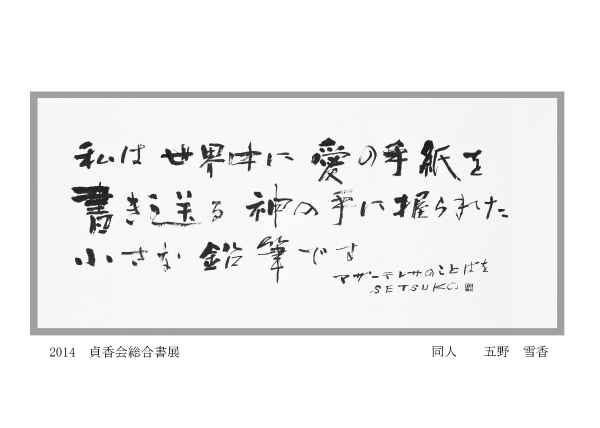 私は世界中に 愛の手紙を
書き送る 神の手に握られた
小さな 鉛筆です
マザーテレサのことばを
SETSUKO
2014 貞香会総合書展
同人 五野 雪香